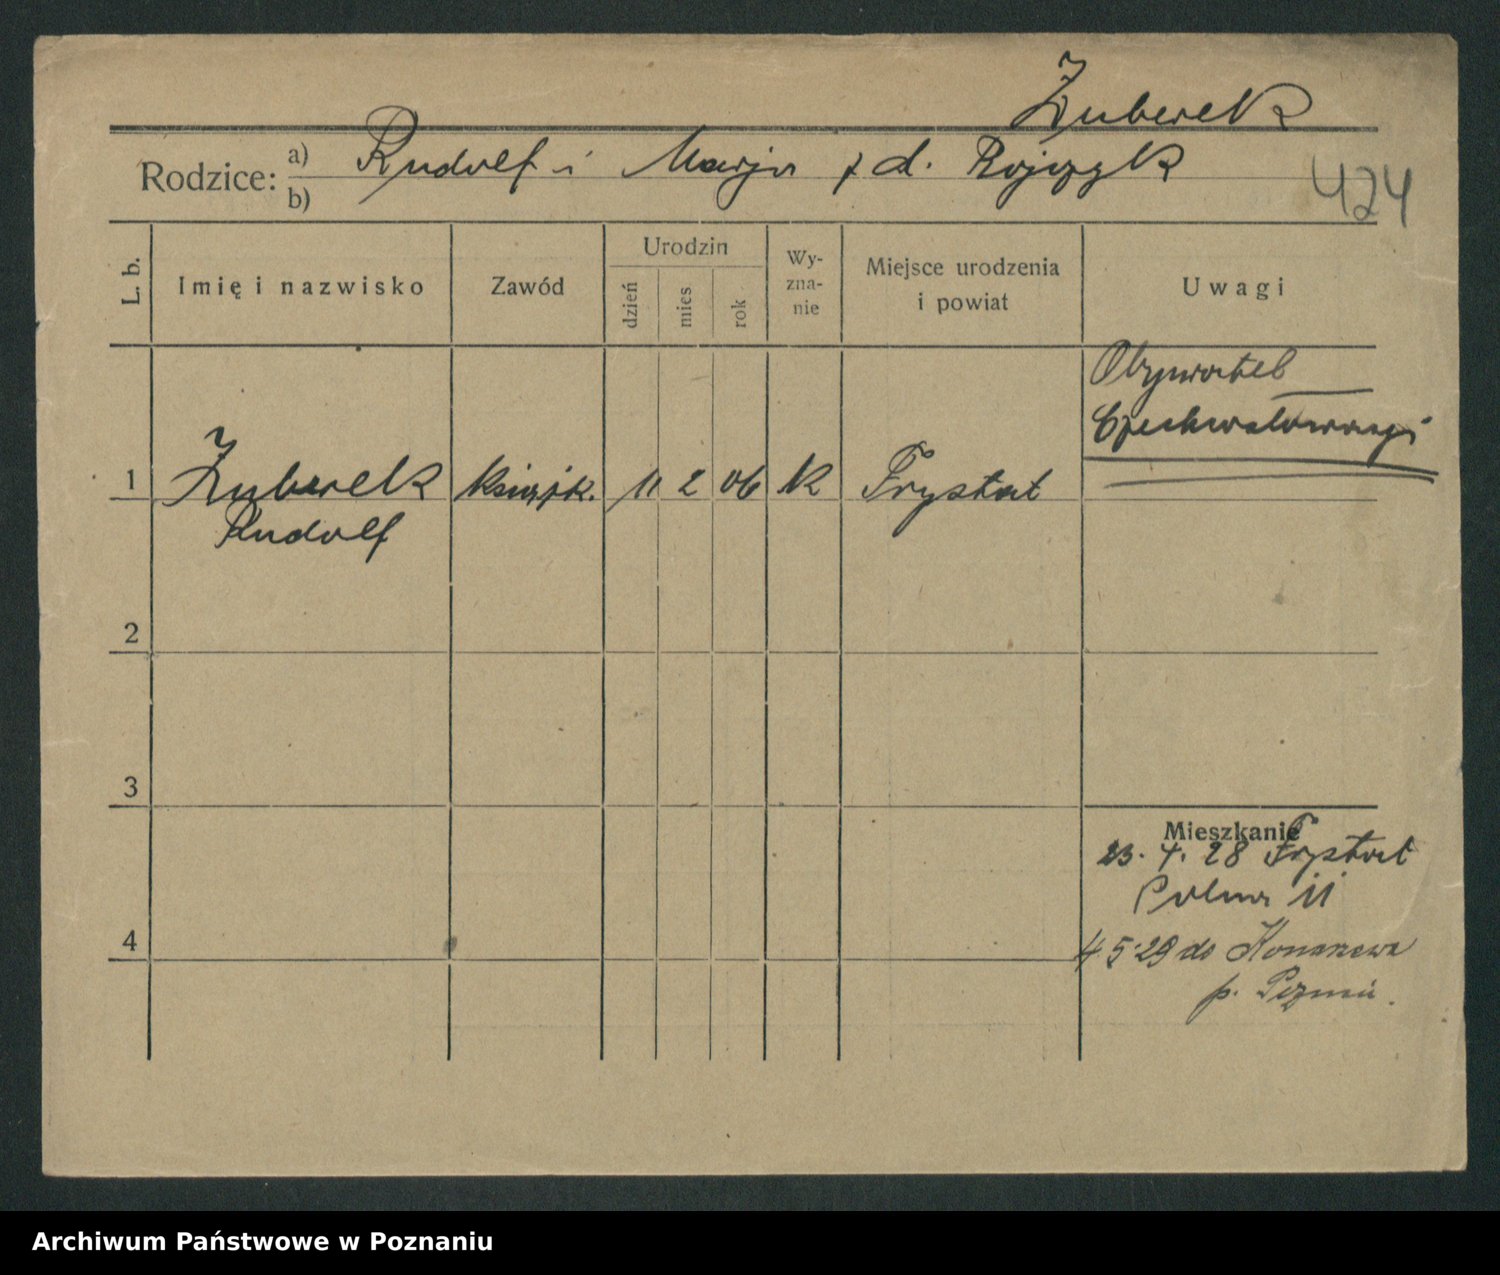 Żuberek
Rodzice: a) Rudolf i Marja z d. Rojczyk
b)
424
L. b.
Imię i nazwisko
Zawód
Urodzin
dzień
mies
rok
Wy-
zna-
nie
Miejsce urodzenia
i powiat
Uwagi
Obywatel
Czechosłowacji
1 Żuberek książk. 11 2 06 K Frysztat
Rudolf
2
3
Mieszkanie
23. 4. 28 Frysztat
Polna 11
4
4 5 29 do Konarzewa
p. Pozn.
Archiwum Państwowe w Poznaniu